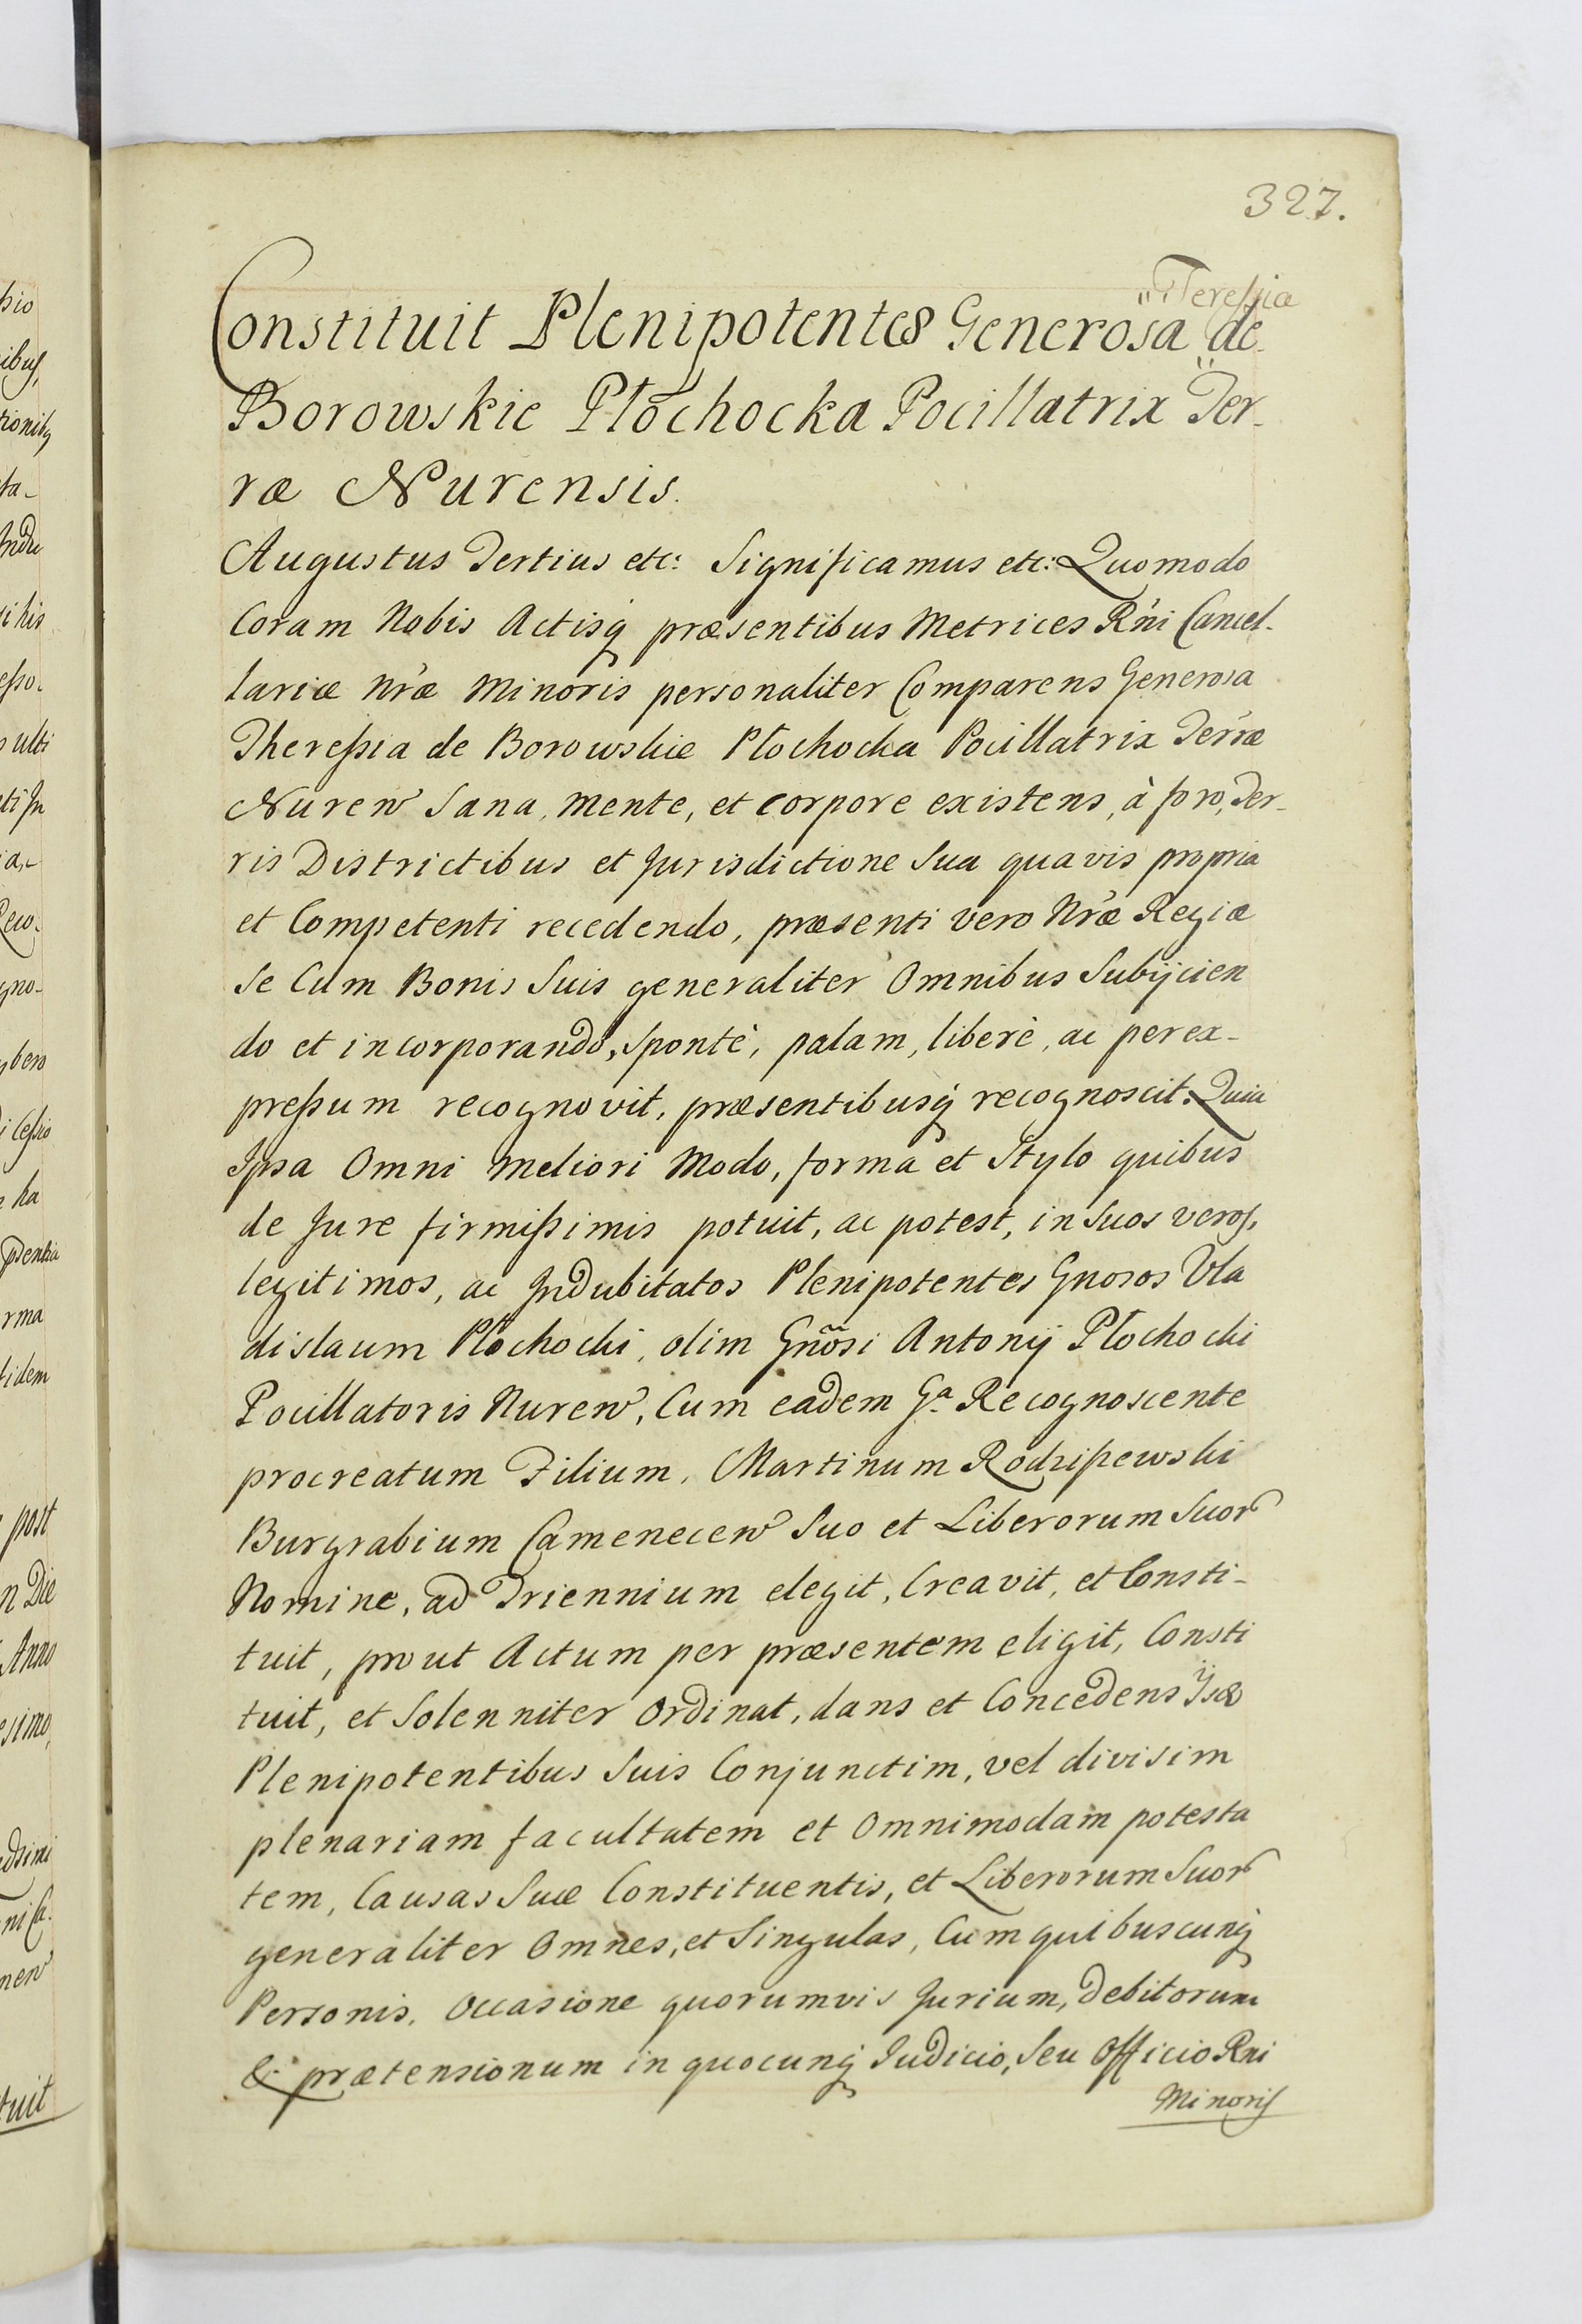 327.
"Teressia
Constituit Plenipotentes Generosa de
Borowskie Płochocka Pocillatrix Ter-
ræ Nurensis.
Augustus Tertius etc: Significamus etc: Quomodo
Coram Nobis Actisq́ præsentibus Metrices Rńi Cancel-
lariæ Nŕæ Minoris personaliter Comparens Generosa
Theressia de Borowskie Płochocka Pocillatrix Terræ
Nuren̄ Sana, mente, et corpore existens, à foro, Ter-
ris Districtibus et Jurisdictione Sua quavis propria
et Competenti recedendo, præsenti vero Nŕæ Regiæ
Se Cum Bonis Suis generaliter Omnibus Subijcien
do et incorporando, sponte, palam, liberè, ac perex-
pressum recognovit, præsentibusq́ recognoscit. Quia
Ipsa Omni meliori Modo, forma et Stylo quibus
de Jure firmissimis potuit, ac potest, in Suos veros,
legitimos, ac Indubitatos Plenipotentes Gnosos Vla
dislaum Płochocki, olim Gñosi Antonij Płochocki
Pocillatoris Nuren̄, Cum eadem Gᵃ Recognoscente
procreatum Filium, Martinum Rodziszewski
Burgrabium Camenecen̄ Suo et Liberorum Suor̄
Nomine, ad Triennium elegit, Creavit, et Consti-
tuit, prout Actum per præsentem eligit, Consti
tuit, et Solenniter Ordinat, dans et Concedens
Plenipotentibus Suis Conjunctim, vel divisim
plenariam facultatem et Omnimodam potesta
tem, Causas Suæ Constituentis, et Liberorum Suor̄
generaliter Omnes, et Singulas, Cum quibuscunq́
Personis, Occasione quorumvis Jurium, Debitorum
& prætensionum in quocunq́ Judicio, Seu Officio Rni
Minoris